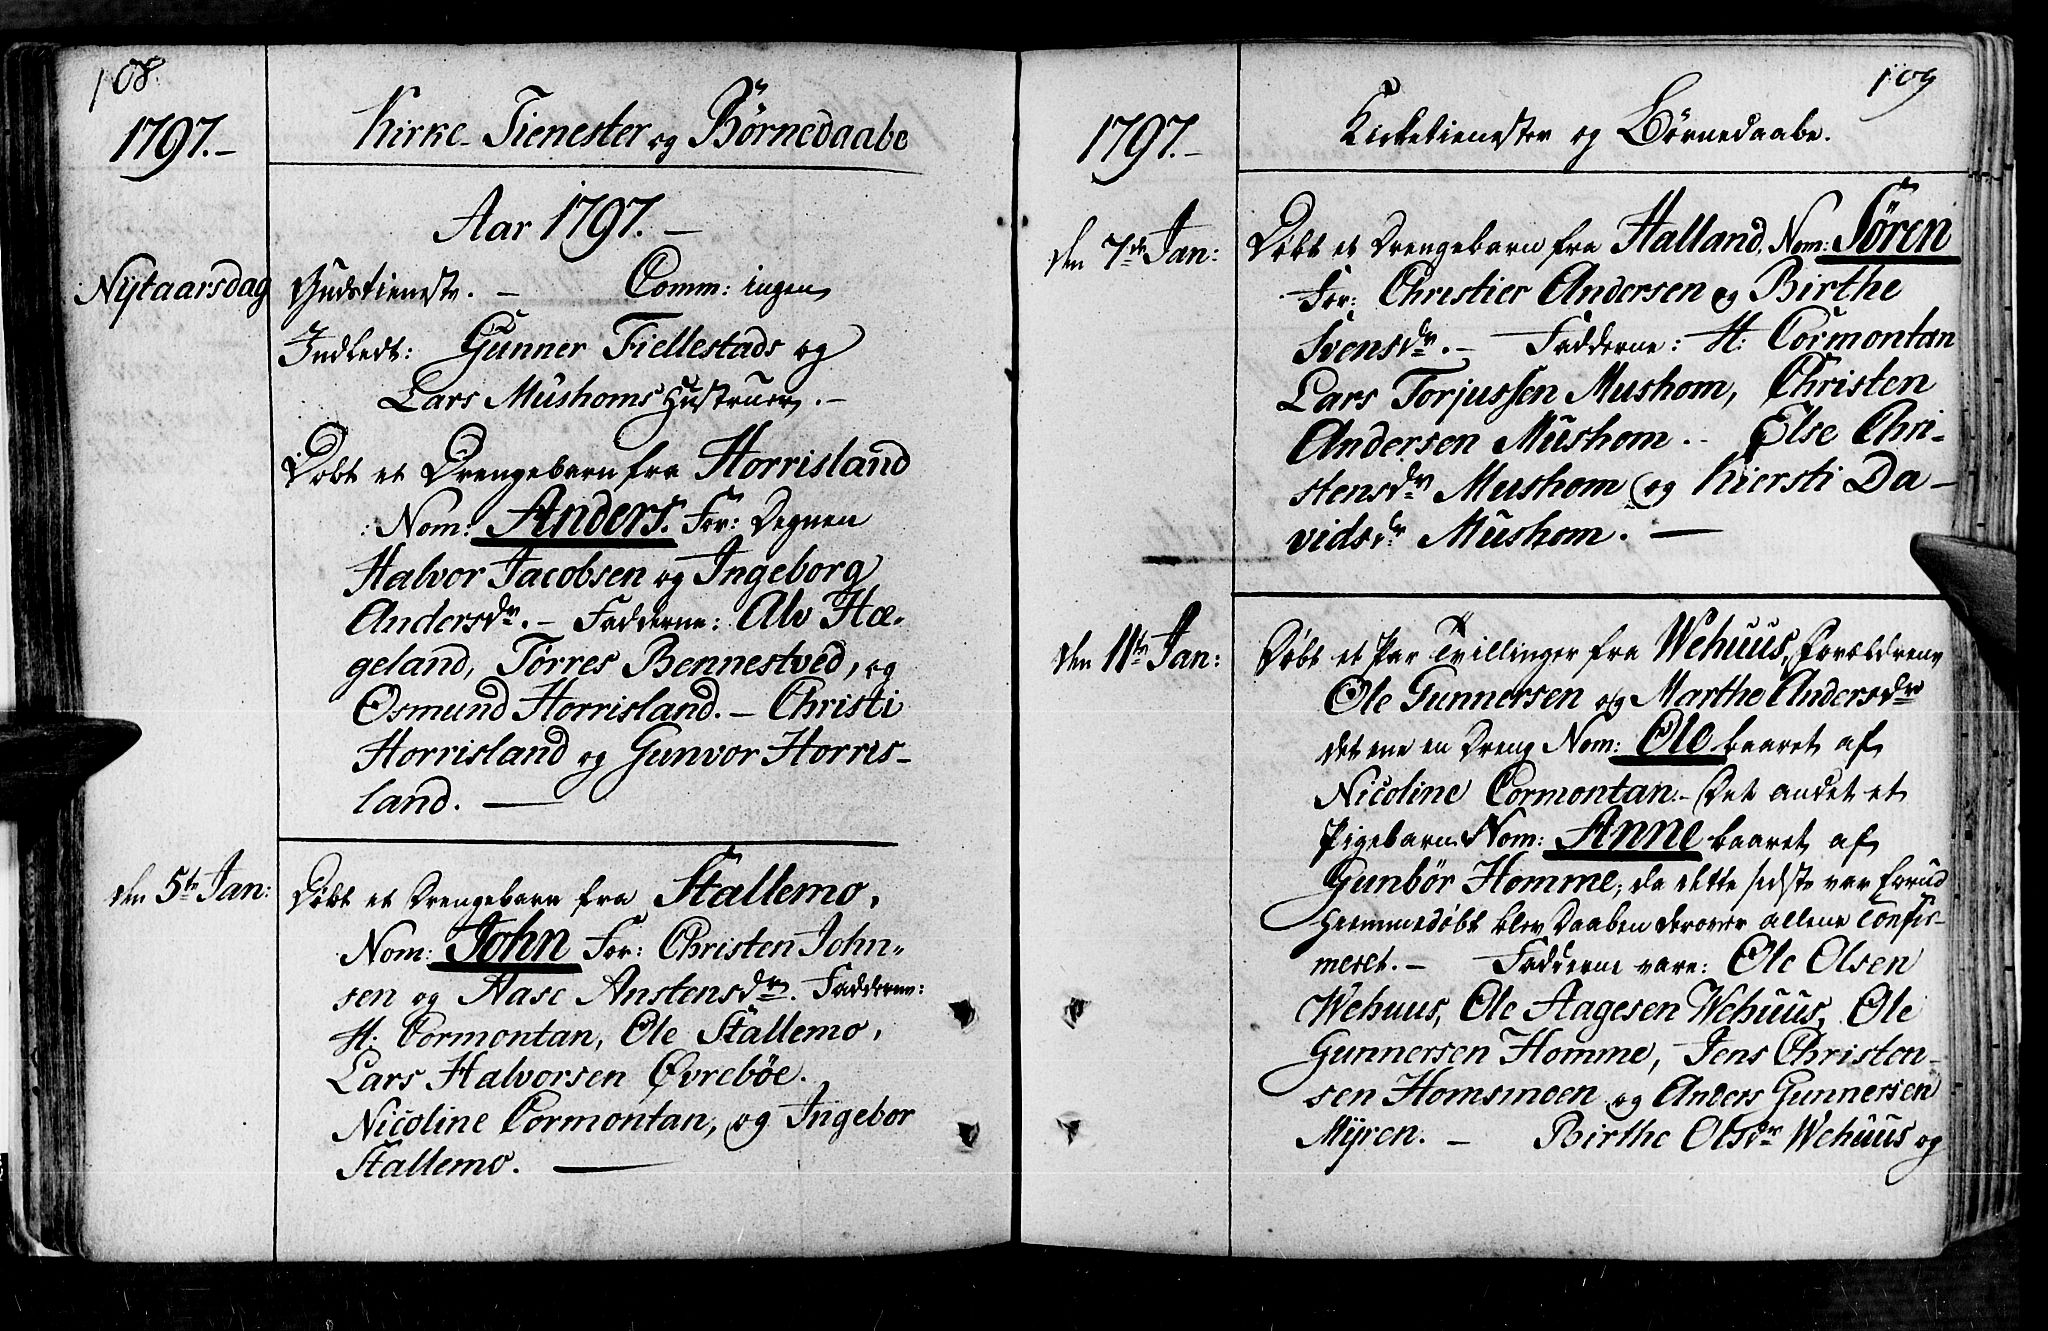 108.
1797.-
Kirke-Tienester og Börnedaabe
Aar 1797.-
Nytaarsdag
Gudstieneste. - Comm: ingen
Indledt: Gunner Fiellestads og
Lars Müshoms Hustruer.-
Döbt et Drengebarn fra Horrisland
Nom: Anders. For: Degnen
Halvor Jacobsen og Ingeborg
Andersdr.- Fadderne: Alv Hæ-
geland, Torres Bennestved, og
Osmund Horrisland.- Christi
Horrisland og Gunvor Horris-
land. —
den 5te Jan:
Döbt et Drengebarn fra Stallemo,
Nom: John For: Christen John-
sen og Aase Anstensdr. Fadderne:
H: Cormontan, Ole Stallemo,
Lars Halvorsen Øvrebøe.
Nicoline Cormontan, og Ingebor
Stallemo. —
109
1797.-
Kirketienester og Börnedaabe.
den 7de Jan:
Döbt et Drengebarn fra Halland, Nom: Sören
For: Christier Andersen og Birthe
Svensdr.- Fadderne: H: Cormontan
Lars Torjussen Mushom, Christen
Andersen Müshom.- Else Chri-
stensdr Mushom og Kiersti Da-
vidsdr Müshom. —
den 11te Jan:
Döbt et Par Tvillinger fra Wehuus, Forældrene
Ole Gunnersen og Marthe Andersdr
det ene en Dreng Nom: Ole baaret af
Nicoline Cormontan.- Det andet et
Pigebarn Nom: Anne baaret af
Gunbör Homme; da dette sidste var forud
hiemmedöbt blev Daaben derover allene Confir-
meret.- Fadderne vare: Ole Olsen
Wehuus, Ole Aagesen Wehüus, Ole
Gunnersen Homme, Jens Christen-
sen Homsmoen og Anders Gunnersen
Myren. - Birthe Olsdr Wehüus og